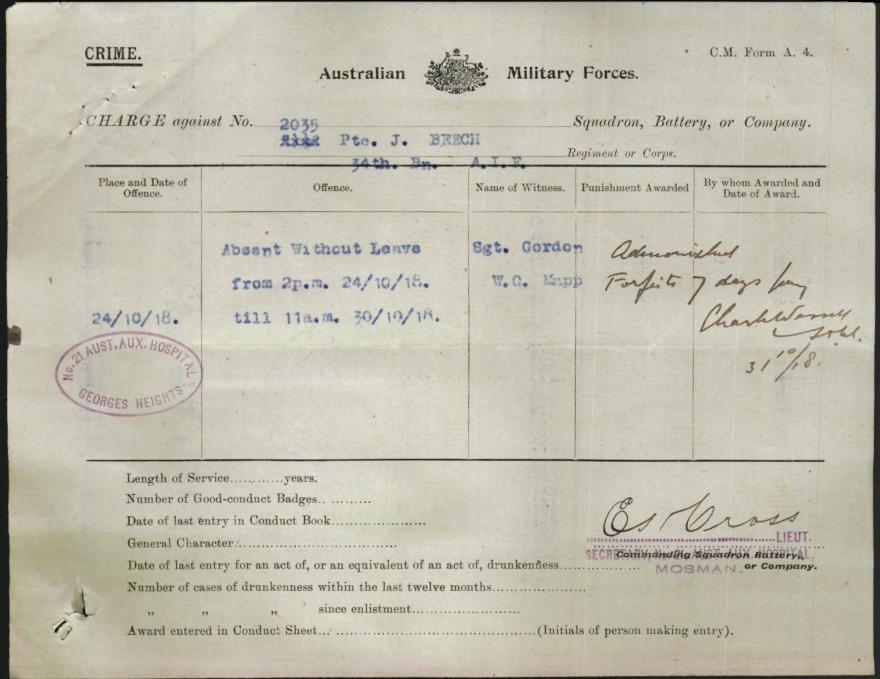 CRIME.
C.M. Form A. 4.
Australian Military Forces.
CHARGE against No. 2035 Squadron, Battery, or Company.
Pte. J. BRECH
Regiment or Corps.
34th. Bn. A.I.F.
Place and Date of Offence. Offence. Name of Witness. Punishment Awarded By whom Awarded and Date of Award.
Absent Without Leave Sgt. Gordon Admonished
from 2p.m. 24/10/18. W.O. Mapp Forfeits 7 days pay
24/10/18. till 11a.m. 30/10/18.
31/10/18.
No. 21 AUST. AUX. HOSPITAL
GEORGES HEIGHTS
Length of Service............years.
Number of Good-conduct Badges.. .........
Date of last entry in Conduct Book......................
General Character......................................
Date of last entry for an act of, or an equivalent of an act of, drunkenness...................
Number of cases of drunkenness within the last twelve months......................
„ „ „ since enlistment......................
Award entered in Conduct Sheet... ........................................(Initials of person making entry).
Cross
LIEUT.
SECRETARY, AUST. AUX. HOSPITAL,
Commanding Squadron Battery,
MOSMAN. or Company.